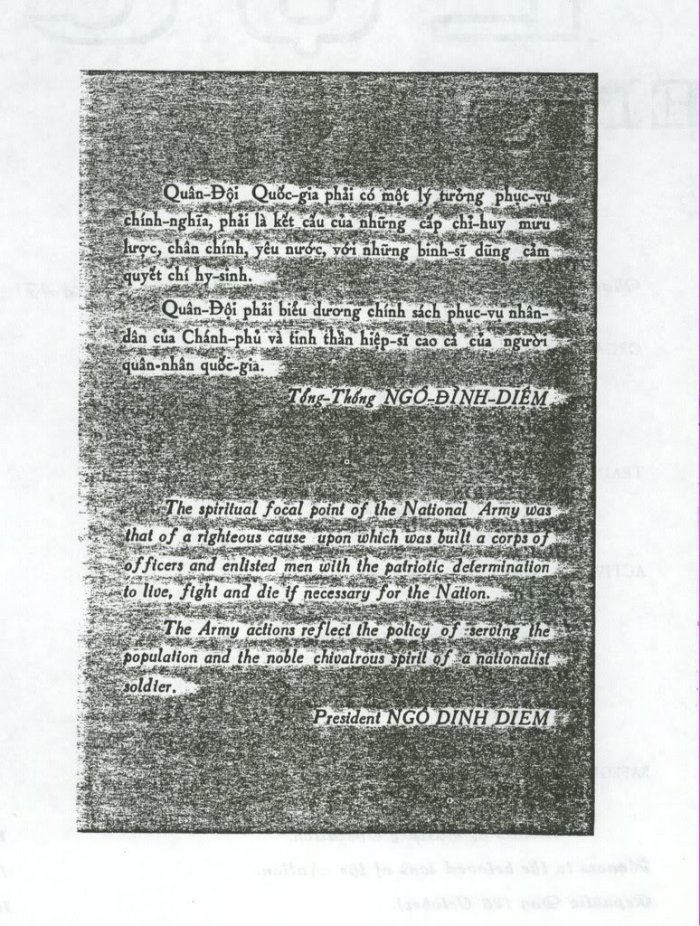 Quân-Đội Quốc-gia phải có một lý tưởng phục-vụ
chính-nghĩa, phải là kết cấu của những cấp chỉ-huy mưu
lược, chân chính, yêu nước, với những binh-sĩ dũng cảm
quyết chí hy-sinh.
Quân-Đội phải biểu dương chính sách phục-vụ nhân-
dân của Chánh-phủ và tinh thần hiệp-sĩ cao cả của người
quân-nhân quốc-gia.
Tổng-Thống NGÔ-ĐÌNH-DIỆM
The spiritual focal point of the National Army was
that of a righteous cause upon which was built a corps of
officers and enlisted men with the patriotic determination
to live, fight and die if necessary for the Nation.
The Army actions reflect the policy of serving the
population and the noble chivalrous spirit of a nationalist
soldier.
President NGÔ DINH DIEM